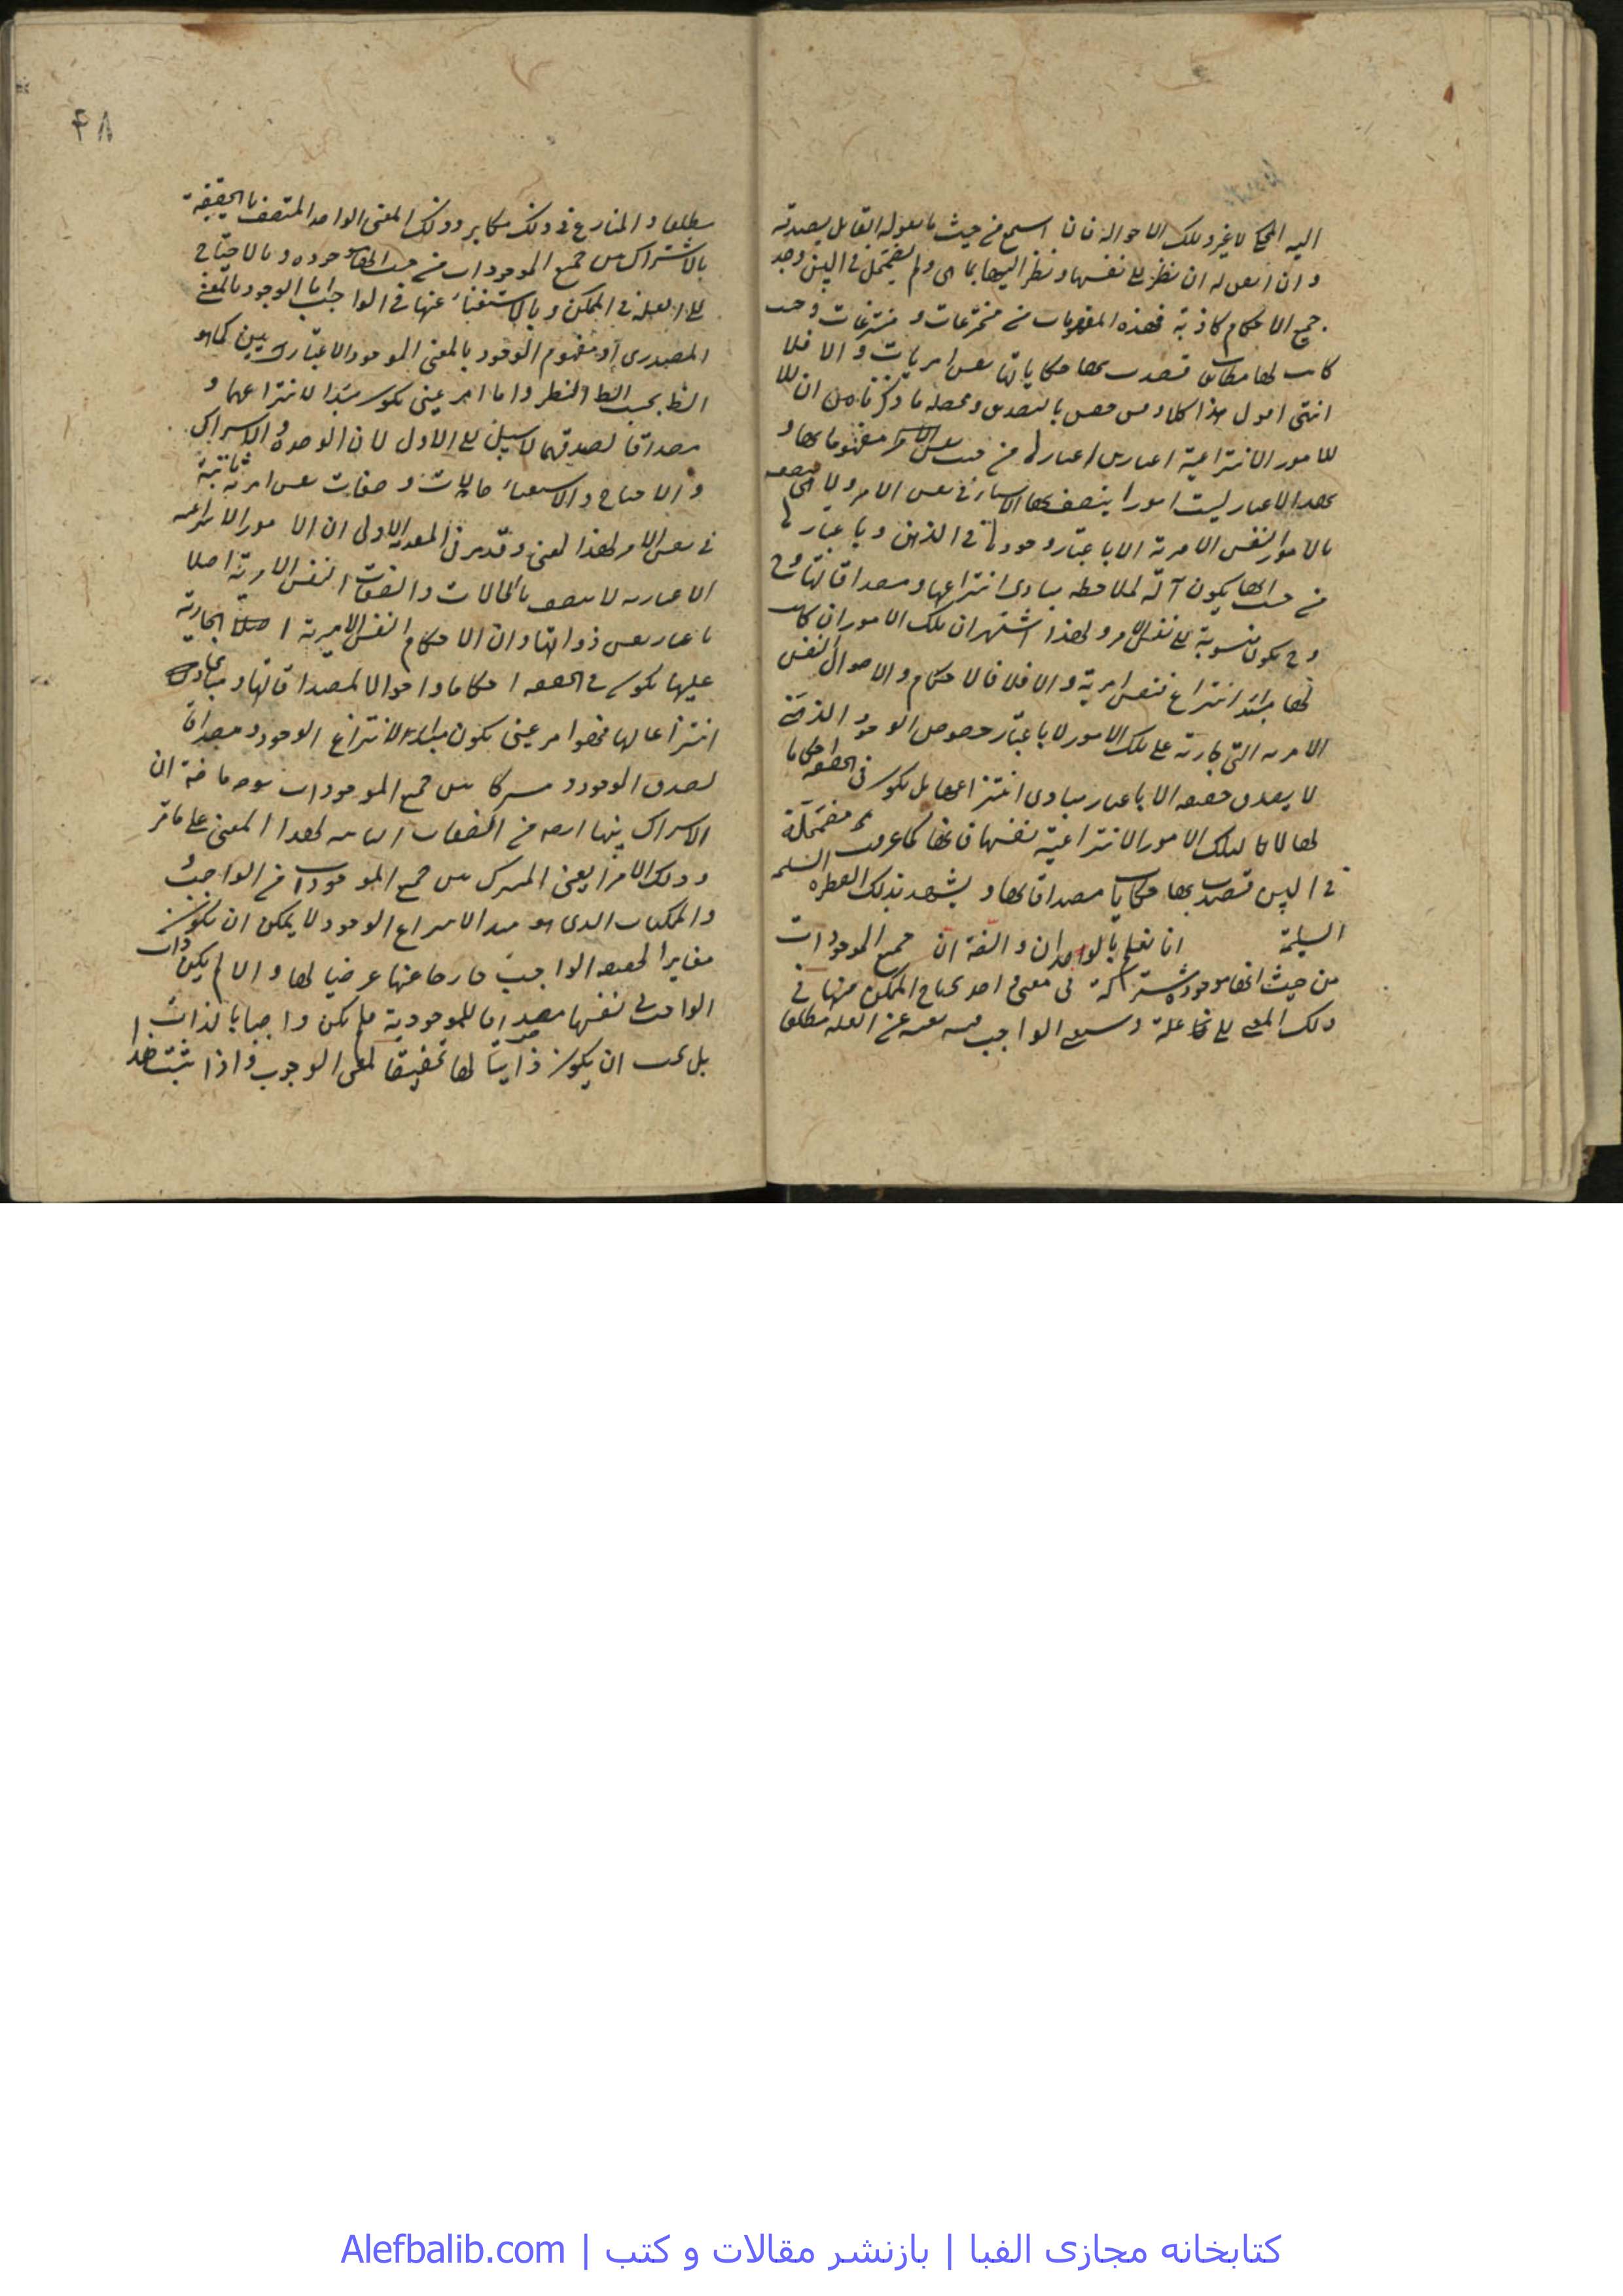 اليه المحكي لا غير وتلك الاحوالة فان اسمع من حيث ما يقوله القابل يصدقه
وان نظر الى نفسها ونظر اليها بما هى ولم يضمحل في البين وجد
جميع الاحكام كاذبة فهذه المفهومات من مخترعات ومنتزعات وحيث
كانت لها مطابق قصدت بها حكاياتها نفس امريات والا فلا
انتهى اقول هذا كلام بالتصديق ومحصله ما ذكرناه من ان
للامور الانتزاعية اعتبارين من حيث مفهوماتها و
بهذا الاعتبار ليست امورا يتصف بها الاشياء في نفس الامر ولا هى
بالامور النفس الامرية الا باعتبار وجودها في الذهن وباعتبارها
من حيث انها يكون آلة لملاحظة مبادى انتزاعها ومصداقاتها و
ح يكون منسوبة الى نفس الامر ولهذا اشتهر ان تلك الامور ان كانت
لها مبدأ انتزاع نفس امرية والا فلا فالاحكام والاحوال النفس
الامرية التى جارية على تلك الامور لا باعتبار خصوص الوجود الذهنية
لا يصدق حقيقة الا باعتبار مبادى انتزاعها بل يكون في الحقيقة احكاما
لها لا لتلك الامور الانتزاعية نفسها فانها كما عرفت مضمحلة
في البين قصدت بها حكايات مصداقاتها ويشهد بذلك الفطرة السليمة
السليمة انا نعلم بالوجدان والصفة ان جميع الموجودات
من حيث انها موجودة مشتركة فى معنى واحد يحتاج الممكن منها في
ذلك المعنى الى علة ويستغنى الواجب فيه بنفسه عن العلة مطلقا
۴۸
مطلقا والمنازع في ذلك مكابر وذلك المعنى الواحد المتصف بالحقيقة
بالاشتراك بين جميع الموجودات من حيث انها موجودة وبالاحتياج
الى العلة في الممكن وبالاستغناء عنها في الواجب اما الوجود بالمعنى
المصدرى او مفهوم الوجود بالمعنى الموجود الاعتبارى كما هو
الظ بحسب النظر واما امر عينى يكون مبدا لانتزاعهما و
مصداقا لصدقهما لا سبيل الى الاول لان الوحدة والاشتراك
والاحتياج والاستغناء حالات وصفات نفس امرية ثابتة
في نفس الامر لهذا المعنى وقد مر في المقدمة الاولى ان الامور الانتزاعية
الاعتبارية لا يتصف بالحالات والصفات النفس الامرية اصلا
باعتبار نفس ذواتها وان الاحكام النفس الامرية الجارية
عليها يكون في الحقيقة احكاما واحوالا لمصداقاتها ومبادى
انتزاعاتها فهو امر عينى يكون مبدا لانتزاع الوجود ومصداقا
لصدق الوجود مشتركا بين جميع الموجودات بوجه ما ان
الاشتراك بينها من الصفات الثابتة لهذا المعنى على ما مر
وذلك الامر يعنى المشترك بين جميع الموجودات من الواجب
والممكنات الذى هو مبدأ لانتزاع الوجود لا يمكن ان يكون
مغايرا لحقيقة الواجب خارجا عنها عرضيا لها والا لم يكن ذات
الواجب في نفسها مصداقا للموجودية فلم يكن واجبا بالذات
بل يجب ان يكون ذاتيا لها تحقيقا لمعنى الوجوب واذا ثبت هذا
کتابخانه مجازی الفبا | بازنشر مقالات و کتب | Alefbalib.com